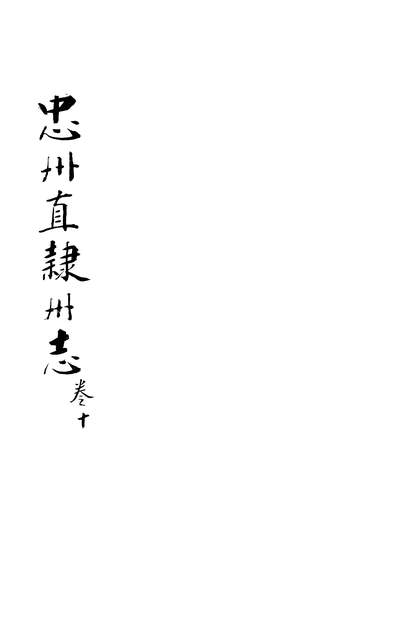 忠州直隸州志
卷十